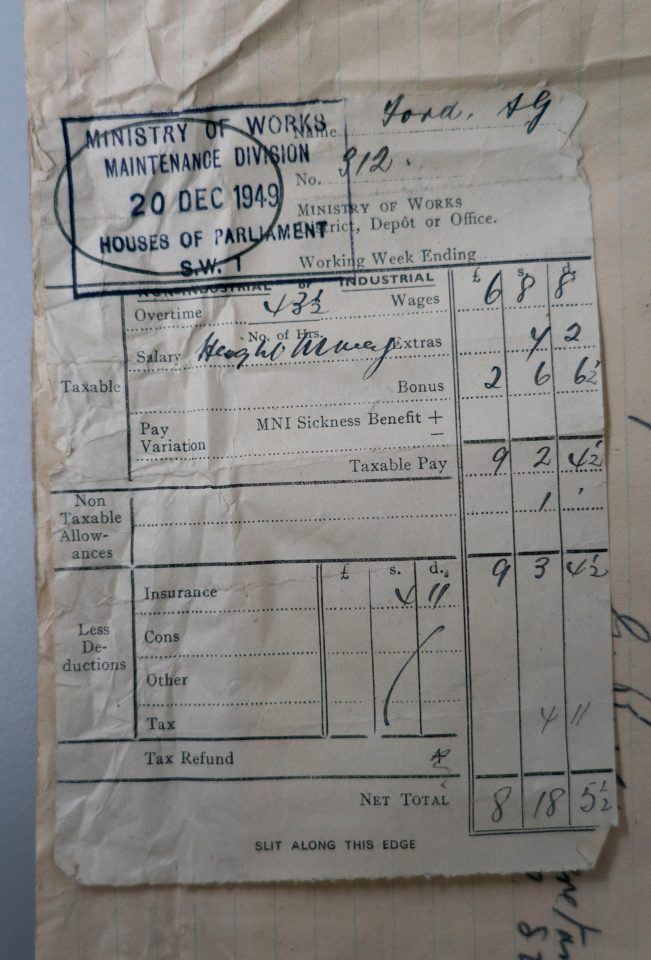 MINISTRY OF WORKS
MAINTENANCE DIVISION
20 DEC 1949
HOUSES OF PARLIAMENT
S.W. 1
Name Ford. AG
No. 312.
MINISTRY OF WORKS
District, Depôt or Office.
Working Week Ending
NON-INDUSTRIAL or INDUSTRIAL £ s. d.
Overtime 43½ Wages 6 8 8
No. of Hrs.
Salary Height Money Extras 7 2
Taxable Bonus 2 6 6½
Pay Variation MNI Sickness Benefit + −
Taxable Pay 9 2 4½
Non Taxable Allow-ances 1
9 3 4½
£ s. d.
Insurance 4 11
Less De-ductions
Cons
Other
Tax
4 11
Tax Refund
NET TOTAL 8 18 5½
SLIT ALONG THIS EDGE